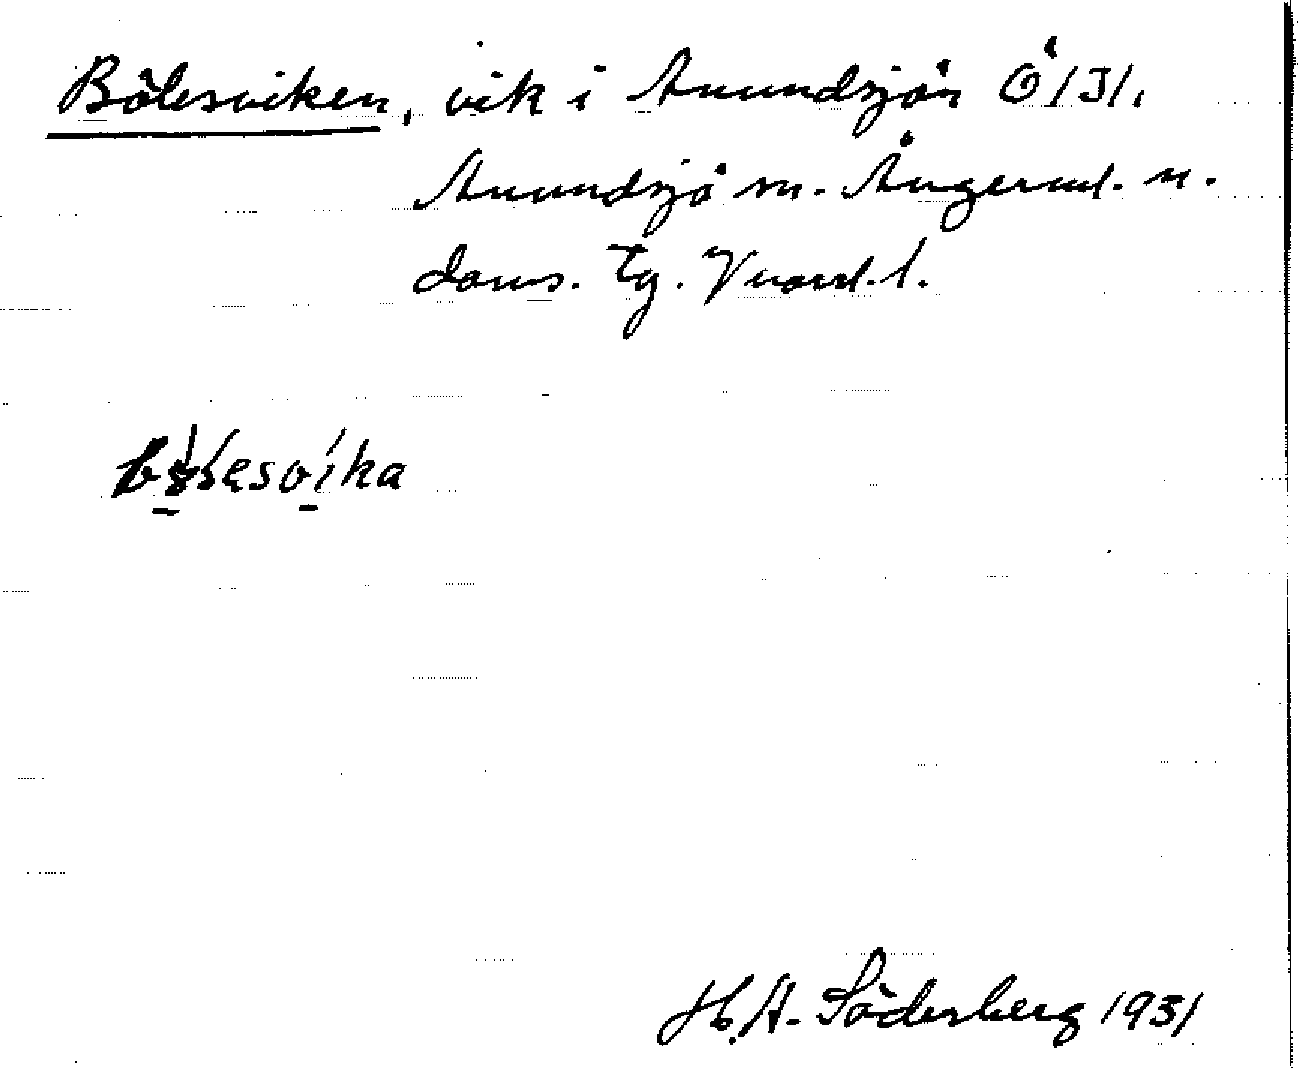 Bölesviken, vik i Anundsjön Ö/J/.
Anundsjö sn. Ångerml. n.
doms. tg. Vnorrl. l.
H. A. Söderberg 1931